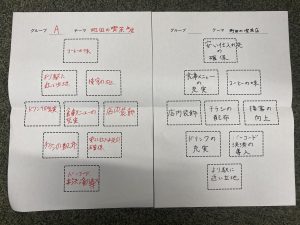 グループ A テーマ 町田の喫茶店
コーヒーの味
より駅に
近い立地
接客の向上
ドリンクの充実
食事メニューの
充実
店内装飾
チラシの配布
安い仕入れ先の
確保
バーコード
決済の導入
グループ テーマ 町田の喫茶店
安い仕入れ先の
確保
食事メニュー
の充実
コーヒーの味
店内装飾
チラシ
の配布
接客の
向上
ドリンクの
充実
バーコード
決済の
導入
より駅に
近い立地